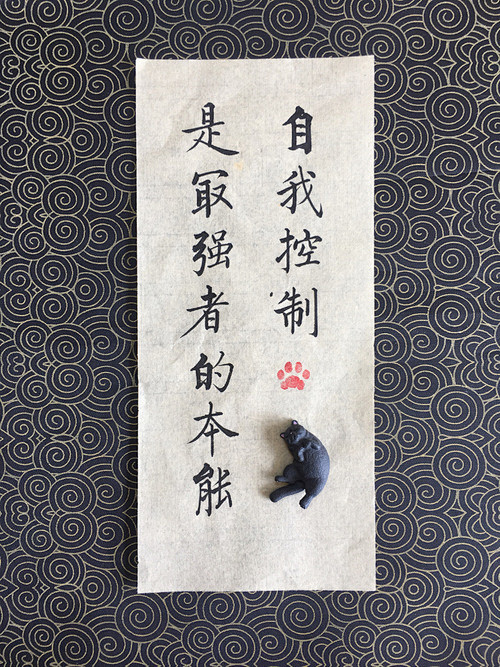 自我控制
是最强者的本能